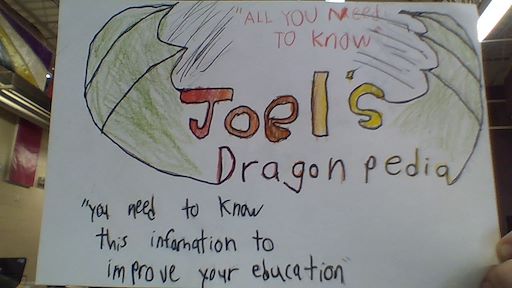 "ALL YOU NEED
TO KNOW"
Joel's
Dragon pedia
"you need to know
this infornation to
improve your ebucation"